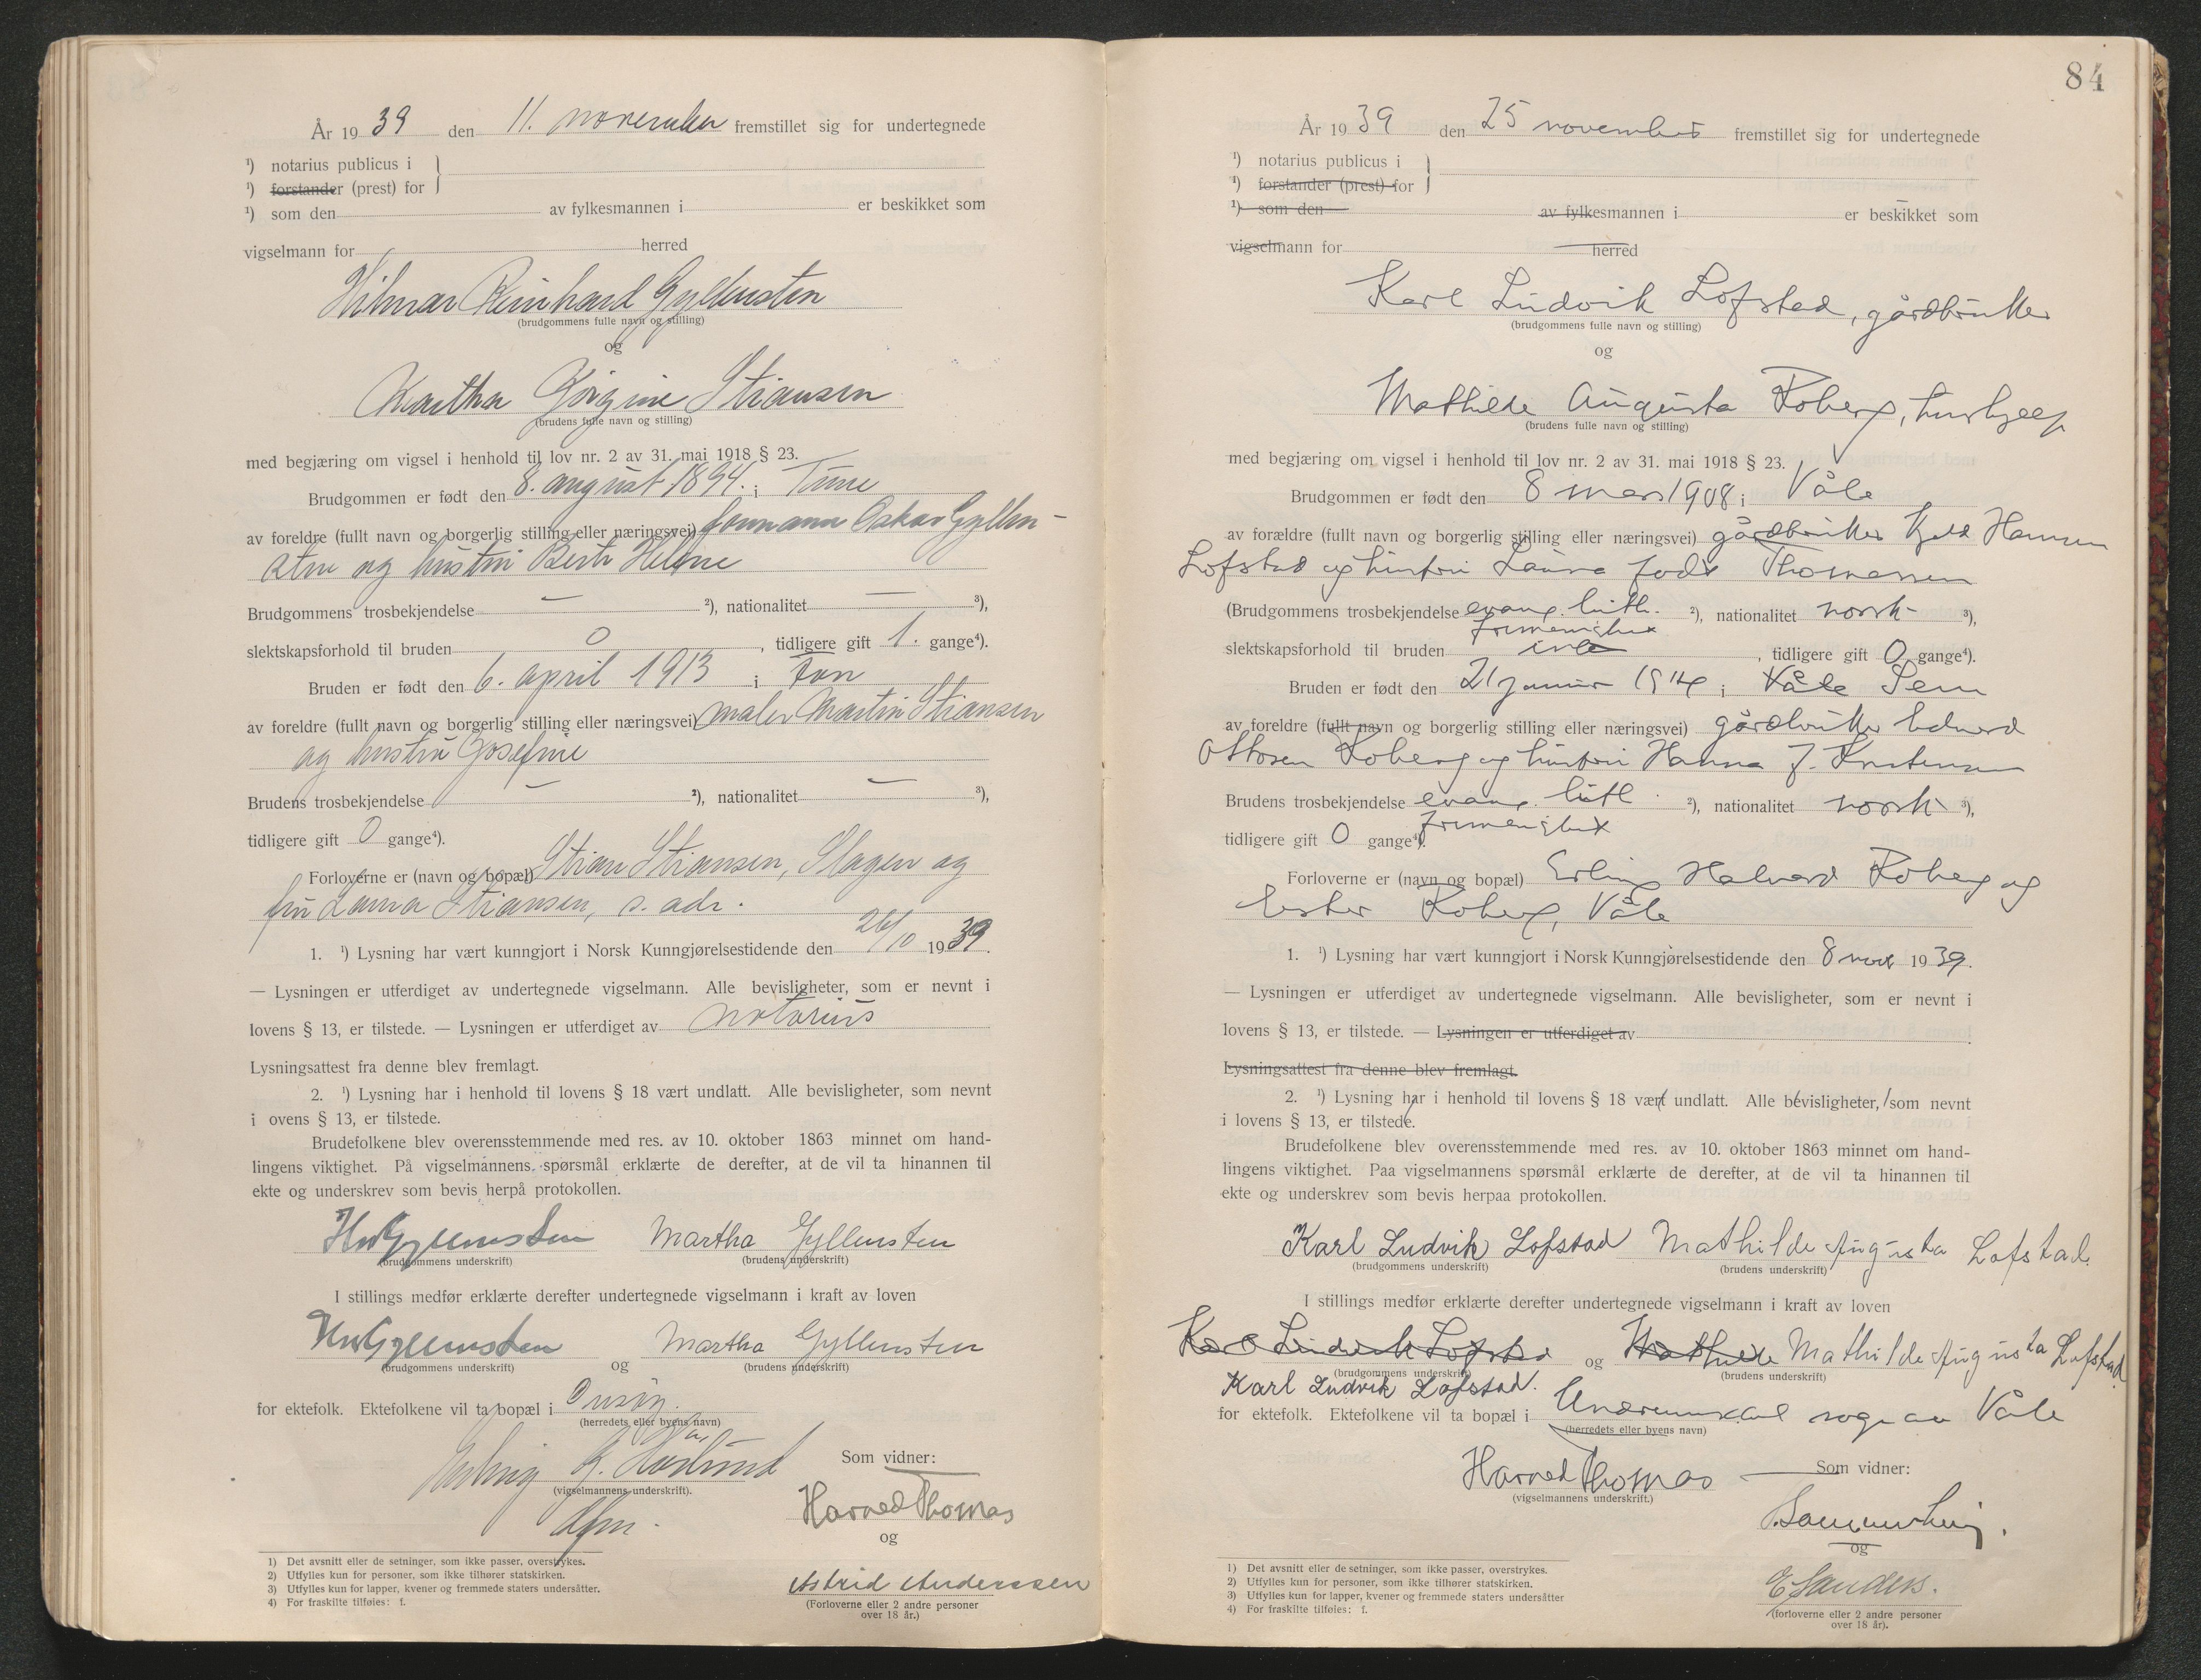 År 19 39 den 11. november fremstillet sig for undertegnede
¹) notarius publicus i
¹) forstander (prest) for
¹) som den av fylkesmannen i er beskikket som
vigselmann for herred
Hilmar Reinhard Gyllensten
(brudgommens fulle navn og stilling)
og
Martha Jørgine Stiansen
(brudens fulle navn og stilling)
med begjæring om vigsel i henhold til lov nr. 2 av 31. mai 1918 § 23.
Brudgommen er født den 8. august 1894. i Tune
av foreldre (fullt navn og borgerlig stilling eller næringsvei) formann Oskar Gyllen-
sten og hustru Helene
Brudgommens trosbekjendelse — ²), nationalitet — ³),
slektskapsforhold til bruden 0, tidligere gift 1. gange⁴).
Bruden er født den 6. april 1913 i
av foreldre (fullt navn og borgerlig stilling eller næringsvei) maler Martin Stiansen
og hustru Josefine
Brudens trosbekjendelse — ²), nationalitet — ³),
tidligere gift 0 gange⁴).
Forloverne er (navn og bopæl) Stian Stiansen, Slagen og
fru Laura Stiansen, s. adr.
1. ¹) Lysning har vært kunngjort i Norsk Kunngjørelsestidende den 26/10 1939.
— Lysningen er utferdiget av undertegnede vigselmann. Alle bevisligheter, som er nevnt i
lovens § 13, er tilstede. — Lysningen er utferdiget av notarius
Lysningsattest fra denne blev fremlagt.
2. ¹) Lysning har i henhold til lovens § 18 vært undlatt. Alle bevisligheter, som nevnt
i ovens § 13, er tilstede.
Brudefolkene blev overensstemmende med res. av 10. oktober 1863 minnet om hand-
lingens viktighet. På vigselmannens spørsmål erklærte de derefter, at de vil ta hinannen til
ekte og underskrev som bevis herpå protokollen.
HRGyllensten Martha Gyllensten
(brudgommens underskrift) (brudens underskrift)
I stillings medfør erklærte derefter undertegnede vigselmann i kraft av loven
HRGyllensten og Martha Gyllensten
(brudgommens underskrift) (brudens underskrift)
for ektefolk. Ektefolkene vil ta bopæl i
(herredets eller byens navn)
Som vidner:
(vigselmannens underskrift).
Harved Thomas
og
Astrid Anderssen
(Forloverne eller 2 andre personer
over 18 år.)
1) Det avsnitt eller de setninger, som ikke passer, overstrykes.
2) Utfylles kun for personer, som ikke tilhører statskirken.
3) Utfylles kun for lapper, kvener og fremmede staters undersåtter.
4) For fraskilte tilføies: f.
84
År 19 39 den 25 november fremstillet sig for undertegnede
¹) notarius publicus i
¹) forstander (prest) for
¹) som den av fylkesmannen i er beskikket som
vigselmann for herred
Karl Ludvik Lofstad, gårdbruker
(brudgommens fulle navn og stilling)
og
Mathilde Augusta Roberg, hushjelp
(brudens fulle navn og stilling)
med begjæring om vigsel i henhold til lov nr. 2 av 31. mai 1918 § 23.
Brudgommen er født den 8 mars 1908 i Våle
av forældre (fullt navn og borgerlig stilling eller næringsvei) gårdbruker Hansen
Lofstad og hustru Laura født Thomassen
(Brudgommens trosbekjendelse evang. luth. ²), nationalitet norsk ³),
frimenighet
slektskapsforhold til bruden, tidligere gift 0 gange⁴).
Bruden er født den 21 januar 1914 i Våle Sem
av foreldre (fullt navn og borgerlig stilling eller næringsvei) gårdbruker Edvard
Ottosen Roberg og hustru Hanna f. Kristensen
Brudens trosbekjendelse evang. luth. ²), nationalitet norsk ³),
frimenighet
tidligere gift 0 gange⁴).
Forloverne er (navn og bopæl) Erling Halvard Roberg og
Ester Roberg, Våle
1. ¹) Lysning har vært kunngjort i Norsk Kunngjørelsestidende den 8 nov 1939.
— Lysningen er utferdiget av undertegnede vigselmann. Alle bevisligheter, som er nevnt i
lovens § 13, er tilstede. — Lysningen er utferdiget av
Lysningsattest fra denne blev fremlagt.
2. ¹) Lysning har i henhold til lovens § 18 vært undlatt. Alle bevisligheter, som nevnt
i lovens § 13, er tilstede.
Brudefolkene blev overensstemmende med res. av 10. oktober 1863 minnet om hand-
lingens viktighet. Paa vigselmannens spørsmål erklærte de derefter, at de vil ta hinannen til
ekte og underskrev som bevis herpaa protokollen.
Karl Ludvik Lofstad Mathilde Augusta Lofstad.
(brudgommens underskrift) (brudens underskrift)
I stillings medfør erklærte derefter undertegnede vigselmann i kraft av loven
Karl Ludvik Lofstad og Mathilde Mathilde Augusta Lofstad
(brudgommens underskrift) (brudens underskrift)
Karl Ludvik Lofstad.
for ektefolk. Ektefolkene vil ta bopæl i Undrumsdal sogn av Våle
(herredets eller byens navn)
Harved Thomas Som vidner:
(vigselmannens underskrift.)
og
E Sanders.
(forloverne eller 2 andre personer
over 18 år).
1) Det avsnitt eller de setninger, som ikke passer, overstrykes.
2) Utfylles kun for personer, som ikke tilhører statskirken.
3) Utfylles kun for lapper, kvener og fremmede staters undersåtter
4) For fraskilte tilføies: f.